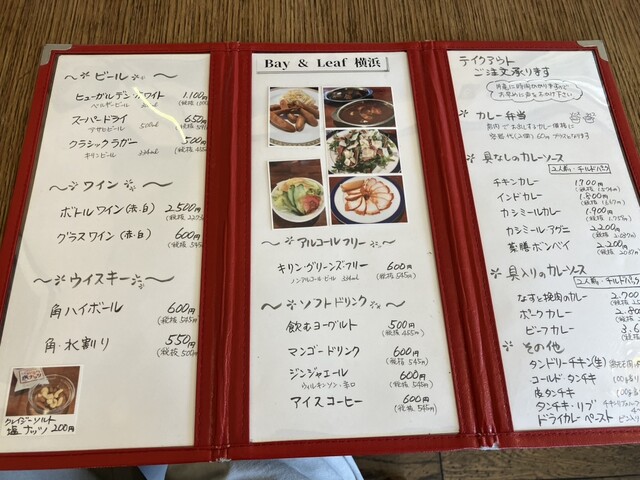 ビール
ヒューガルデンホワイト 1,100円
ベルギービール
スーパードライ 650円
アサヒビール 500ml
クラシックラガー 500円
キリンビール
ワイン
ボトルワイン(赤・白) 2,500円
グラスワイン(赤・白) 600円
(税抜 545円)
ウイスキー
角ハイボール 600円
(税抜 545円)
角・水割り 550円
(税抜 500円)
クレイジーソルト
塩ナッツ 200円
Bay & Leaf 横浜
アルコールフリー
キリン・グリーンズ・フリー 600円
ノンアルコール ビール 334ml (税抜 545円)
ソフトドリンク
飲むヨーグルト 500円
(税抜 455円)
マンゴードリンク 600円
(税抜 545円)
ジンジャエール 600円
ウィルキンソン・辛口 (税抜 545円)
アイスコーヒー 600円
(税抜 545円)
テイクアウト
ご注文承ります
カレー弁当
店内でお出しするカレー価格に
容器代(2個) 60円プラスになります
具なしのカレーソース
2人前・チルドパック
チキンカレー 1,700円
インドカレー 1,800円
カシミールカレー 1,900円
カシミール・アグニ 2,200円
薬膳ボンベイ 2,200円
具入りのカレーソース
2人前・チルドパック
なすと挽肉のカレー 2,700
ポークカレー 2,800
ビーフカレー
その他
タンドリーチキン(生)
コールド・タンチキ
皮タンチキ
タンチキ・リブ
ドライカレーペースト